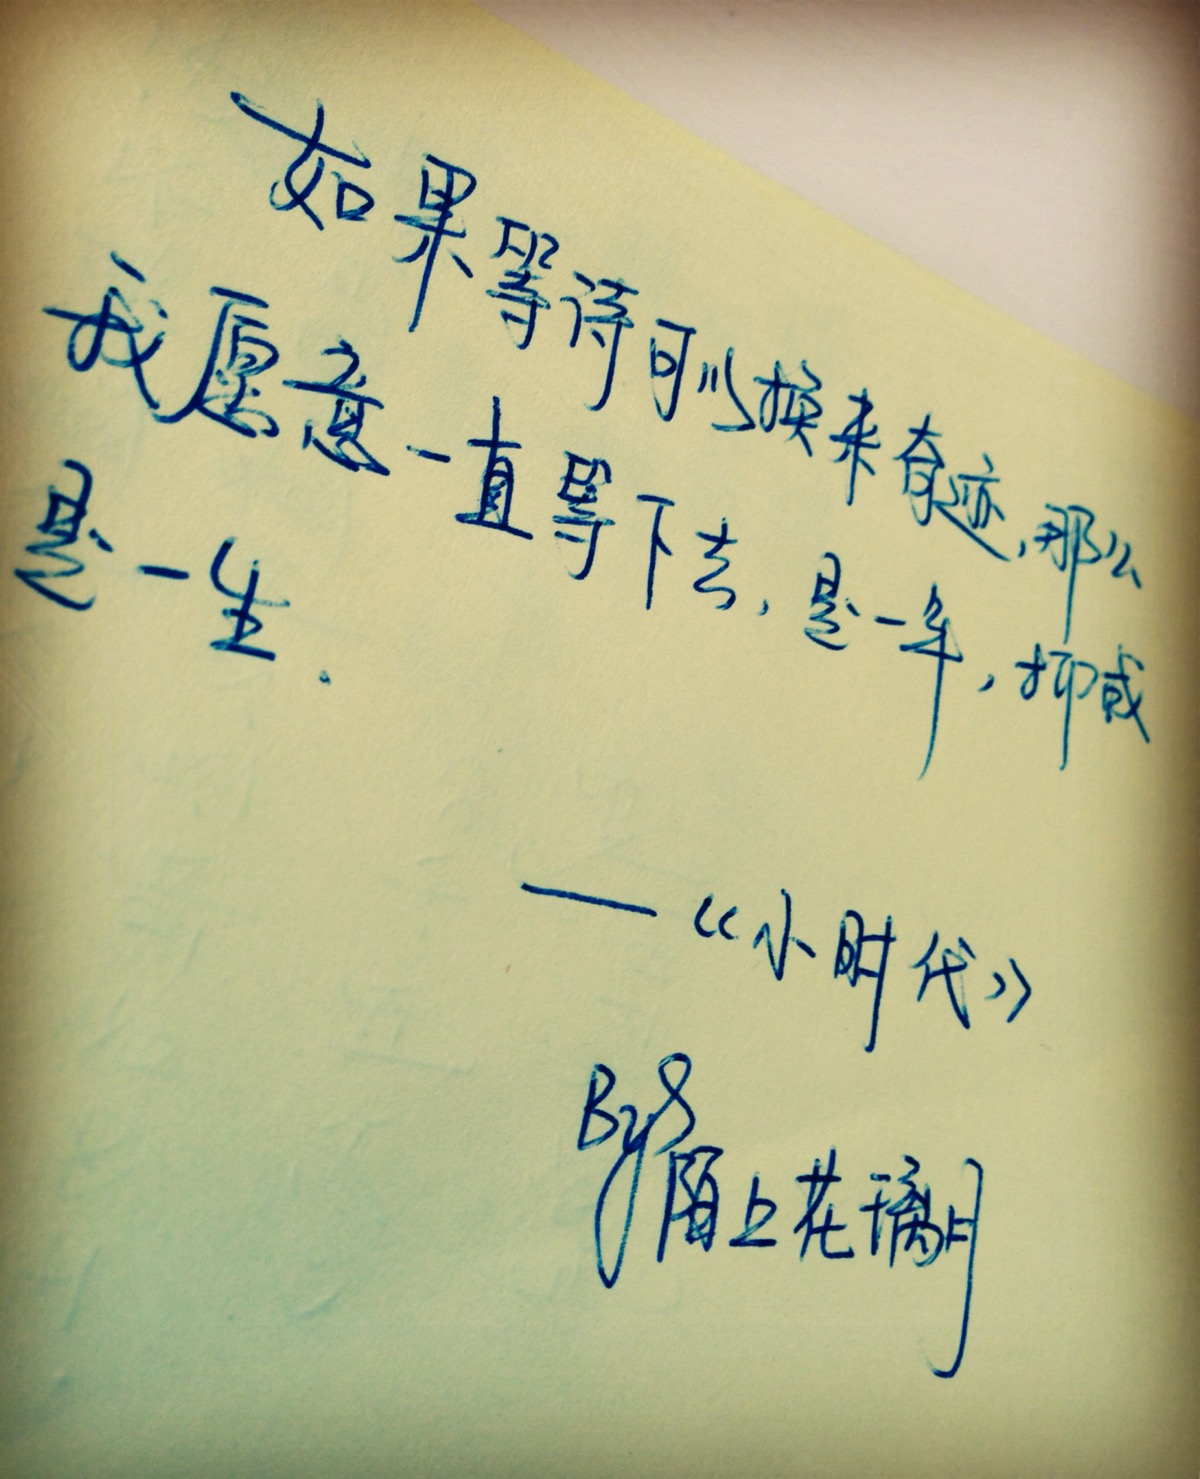 如果等待可以换来奇迹,那么
我愿意一直等下去,是一年,抑或
是一生.
——《小时代》
By
陌上花璃月